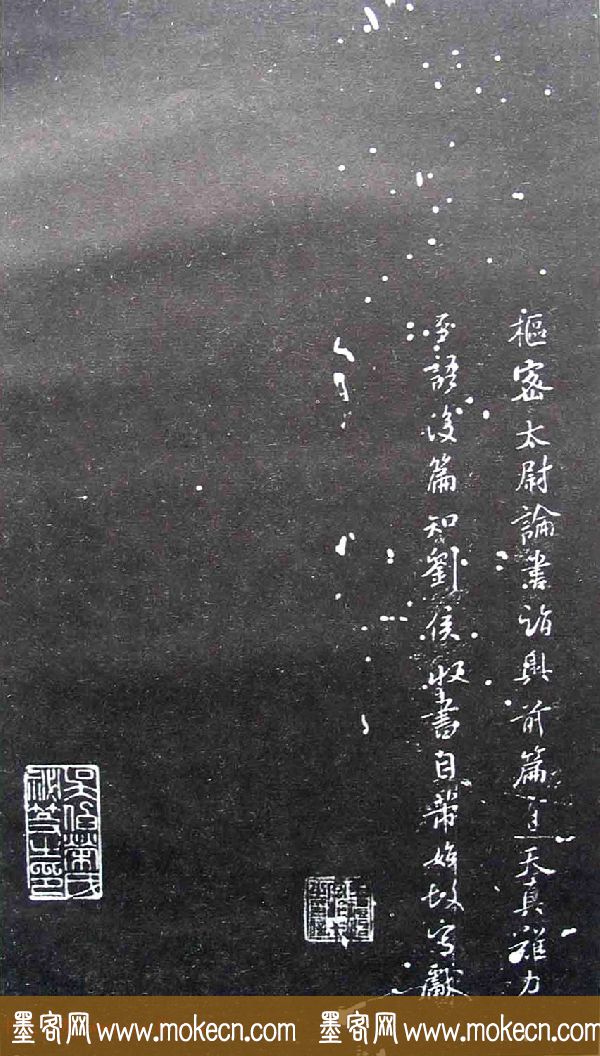 樞密太尉論書詣興前篇主天真難力
至語後篇知劉侯收書自幣始故寫獻
墨客网 www.mokecn.com 墨客网 www.mokecn.com